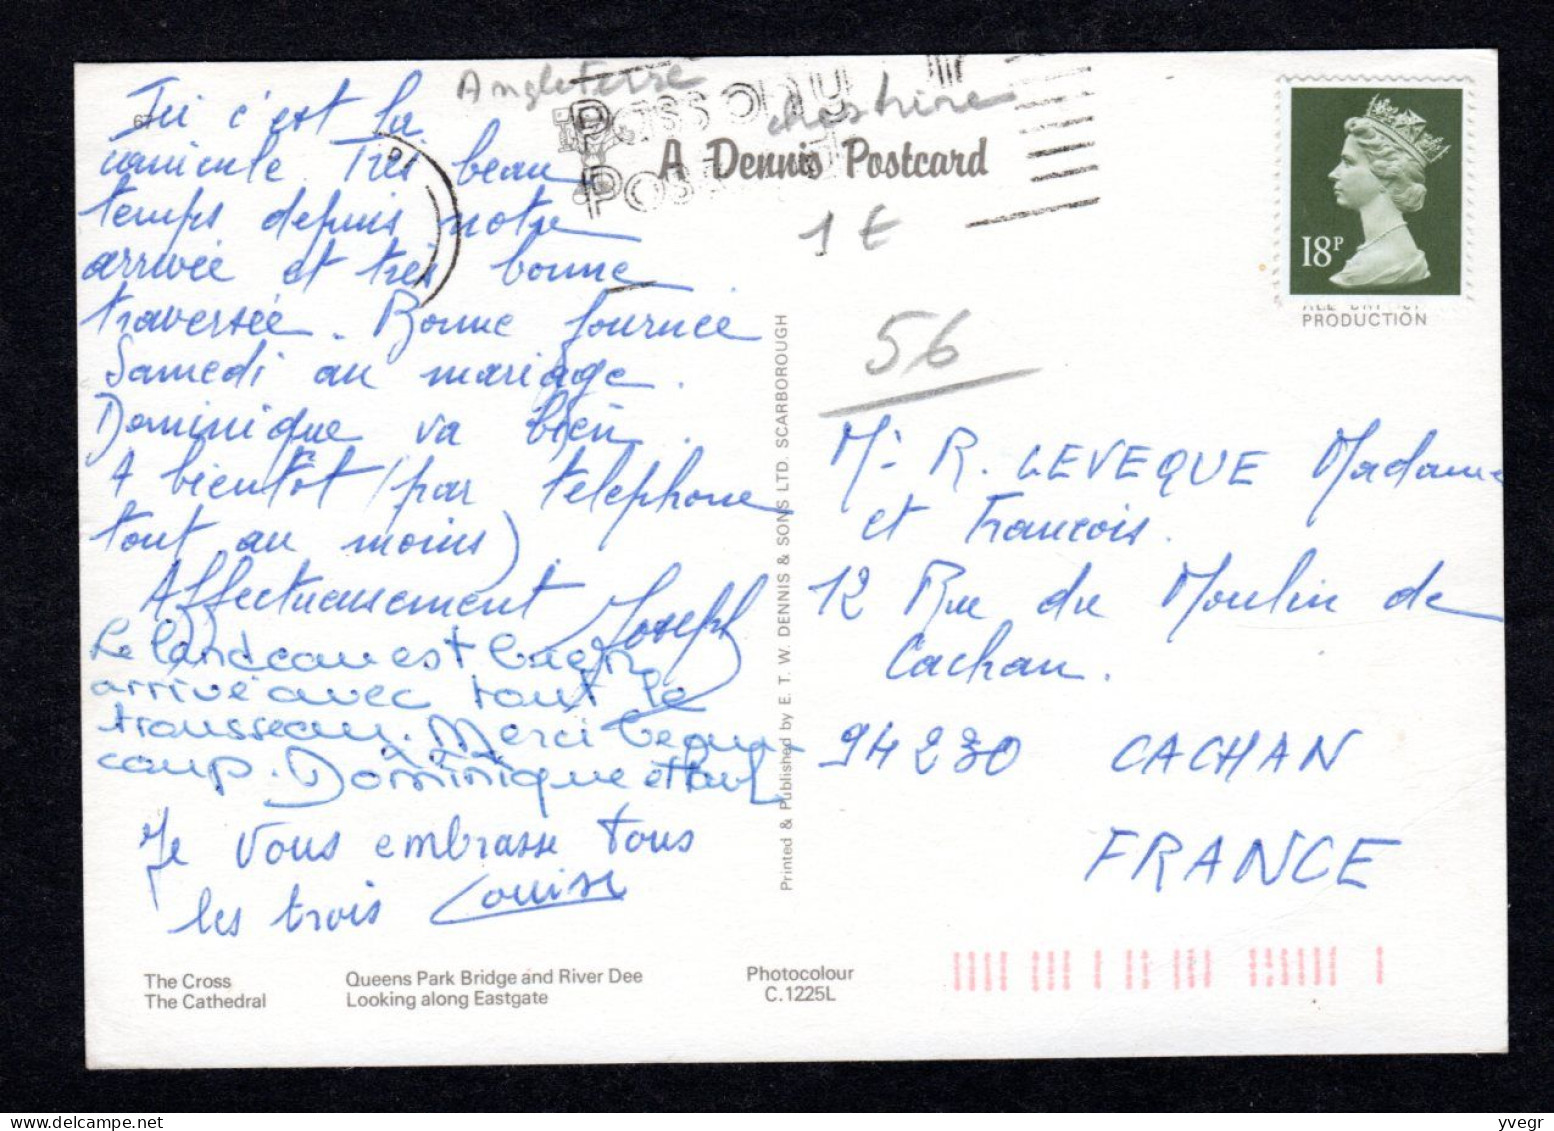 Ici c'est la
canicule. Très beau
temps depuis notre
arrivée et très bonne
traversée. Bonne journée
Samedi au mariage.
Dominique va bien.
A bientôt (par telephone
tout au moins)
Affectueusement Joseph
Le landeau est bien
arrivé avec tout le
trousseau. Merci beau-
coup. Dominique et Paul
Je vous embrasse tous
les trois Louise
The Cross
The Cathedral
Queens Park Bridge and River Dee
Looking along Eastgate
Photocolour
C.1225L
Printed & Published by E. T. W. DENNIS & SONS LTD. SCARBOROUGH
Angleterre
A Dennis Postcard
1 €
56
18P
PRODUCTION
Mr R. LEVEQUE Madame
et Francois.
12 Rue du Moulin de
Cachan.
94230 CACHAN
FRANCE